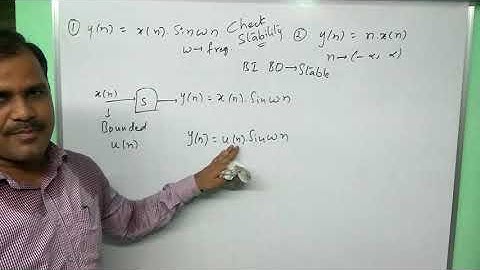 ① y(n) = x(n). Sin ωn Check Stability ② y(n) = n.x(n)
ω → freq. n → (-∝, ∝)
BI BO → Stable
x(n) → S → y(n) = x(n). Sin ωn
Bounded
u(n) y(n) = u(n). Sin ωn